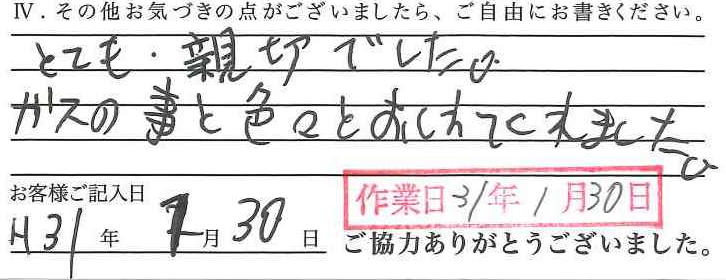 Ⅳ．その他お気づきの点がございましたら、ご自由にお書きください。
とても・親切でした。
ガスの事と色々とおしえてくれました。
お客様ご記入日
H31年 1月30日
作業日31年1月30日
ご協力ありがとうございました。